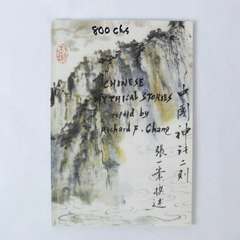 800 chs
CHINESE
MYTHICAL STORIES
retold by
Richard F. Chang
中國神話二則
張一峯撰述